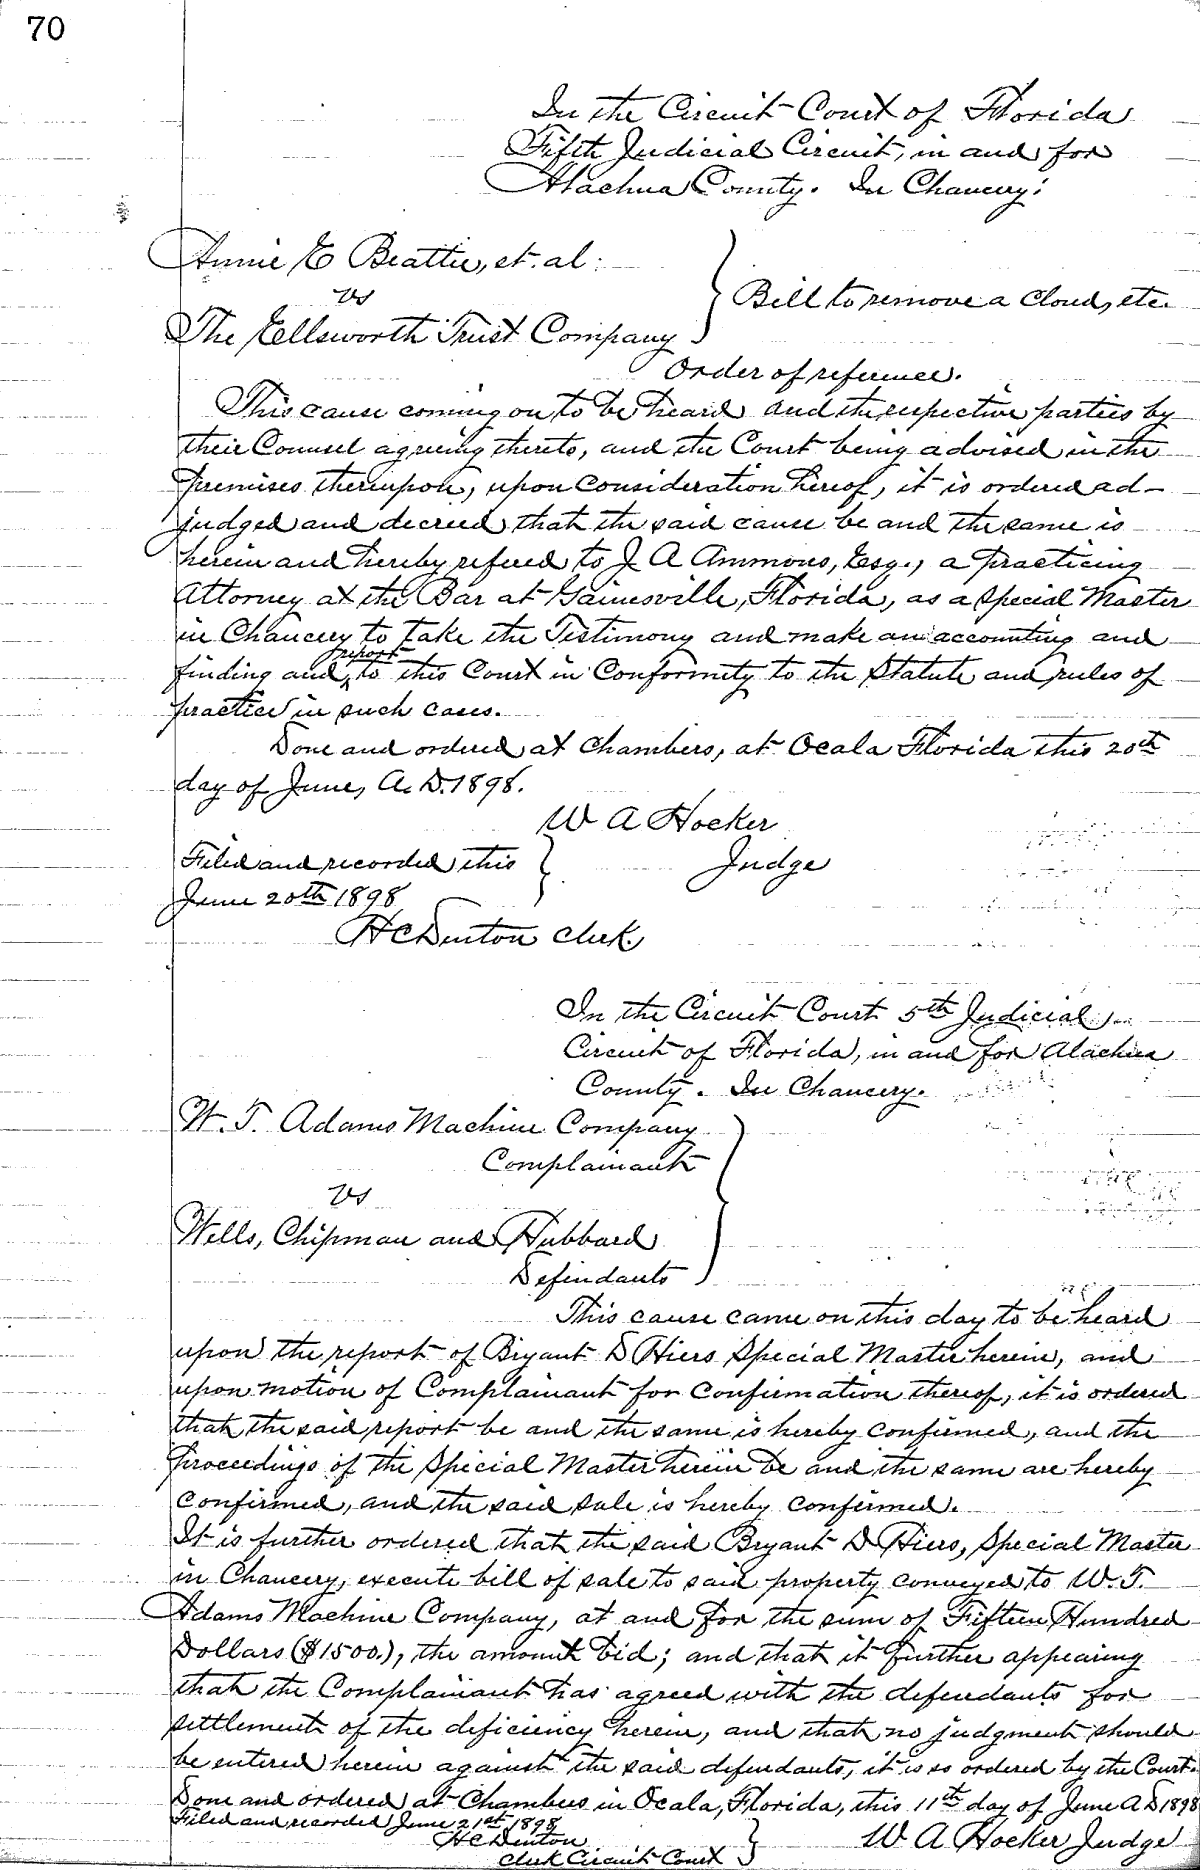 70
In the Circuit Court of Florida
Fifth Judicial Circuit, in and for
Alachua County. In Chancery:
Annie E Beattie, et. al:
vs
Bill to remove a Cloud, etc.
The Ellsworth Trust Company
Order of reference.
This cause coming on to be heard and the respective parties by
their Counsel agreeing thereto, and the Court being advised in the
premises thereupon, upon consideration hereof, it is ordered ad-
judged and decreed that the said cause be and the same is
herein and hereby refered to J A Ammons, Esq., a practicing
Attorney at the Bar at Gainesville, Florida, as a Special Master
in Chancery to take the Testimony and make an accounting and
report
finding and to this Court in Conformity to the Statute and rules of
practice in such cases.
Done and ordered at Chambers, at Ocala Florida this 20th
day of June, A. D. 1898.
W A Hocker
Judge
Filed and recorded this
June 20th 1898
H C Denton Clerk
In the Circuit Court 5th Judicial
Circuit of Florida, in and for Alachua
County. In Chancery.
W. T. Adams Machine Company
Complainant
vs
Wells, Chipman and Hubbard
Defendants
This cause came on this day to be heard
upon the report of Bryant D Hiers Special Master herein, and
upon motion of Complainant for confirmation thereof, it is ordered
that the said report be and the same is hereby confirmed, and the
proceedings of the Special Master herein be and the same are hereby
confirmed, and the said sale is hereby confirmed.
It is further ordered that the said Bryant D Hiers, Special Master
in Chancery, execute bill of sale to said property conveyed to W. T.
Adams Machine Company, at and for the sum of Fifteen Hundred
Dollars ($1500.), the amount bid; and that it further appearing
that the Complainant has agreed with the defendants for
settlement of the deficiency herein, and that no judgment should
be entered herein against the said defendants, it is so ordered by the Court.
Done and ordered at Chambers in Ocala, Florida, this 11th day of June A D 1898
Filed and recorded June 21st 1898
H C Denton
Clerk Circuit Court
W A Hocker Judge